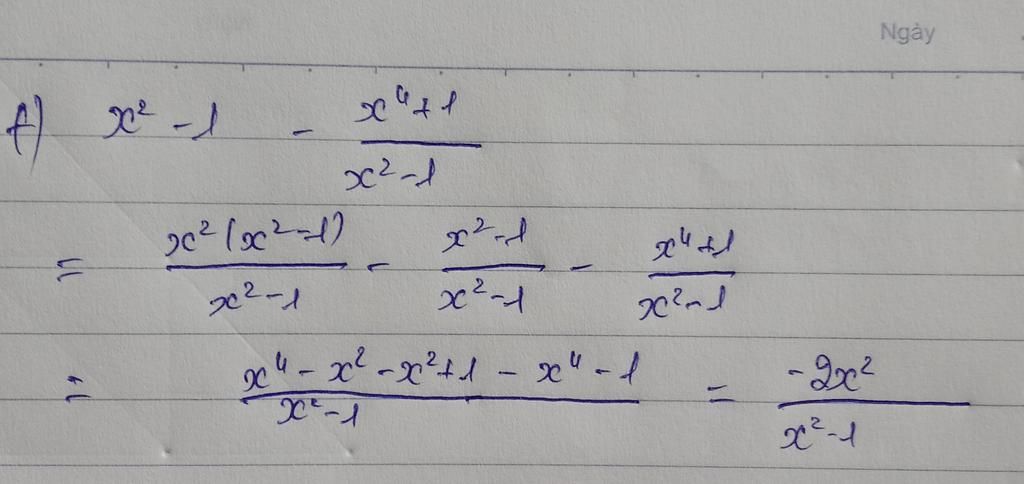 Ngày
f) x² - 1 - (x⁴ + 1)/(x² - 1)
= x²(x² - 1)/(x² - 1) - (x² - 1)/(x² - 1) - (x⁴ + 1)/(x² - 1)
= (x⁴ - x² - x² + 1 - x⁴ - 1)/(x² - 1) = -2x²/(x² - 1)